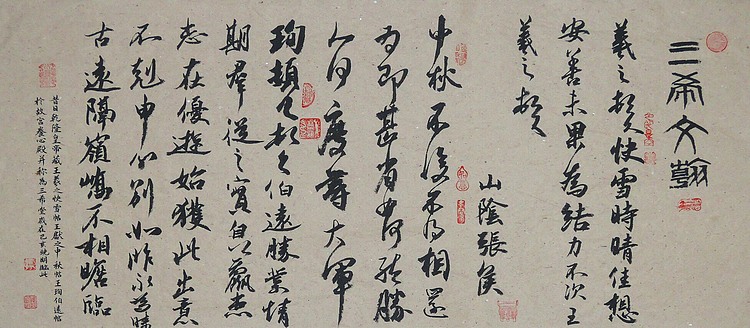 三希文翰
羲之頓首快雪時晴佳想
安善未果為結力不次王
羲之頓首
山陰張侯
中秋不復不得相還
為即甚省如何然勝
人何慶等大軍
珣頓首頓首伯遠勝業情
期群從之寶自以羸患
志在優遊始獲此出意
不剋申分別如昨永為疇
古遠隔嶺嶠不相瞻臨
昔日乾隆皇帝藏王羲之快雪帖王獻之中秋帖王珣伯遠帖
於故宮養心殿並稱為三希堂歲在己亥